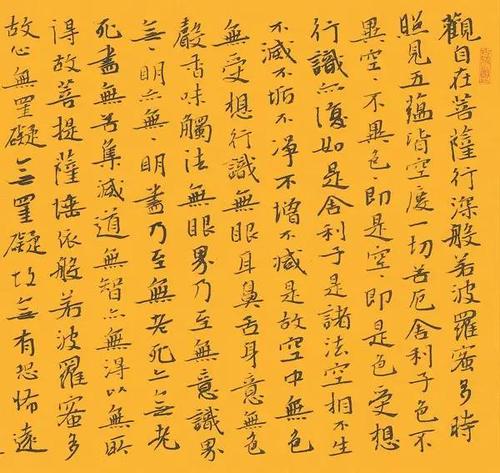 觀自在菩薩行深般若波羅蜜多時
照見五蘊皆空度一切苦厄舍利子色不
異空〻不異色〻即是空〻即是色受想
行識亦復如是舍利子是諸法空相不生
不滅不垢不淨不增不減是故空中無色
無受想行識無眼耳鼻舌身意無色
聲香味觸法無眼界乃至無意識界
無〻明亦無〻明盡乃至無老死亦無老
死盡無苦集滅道無智亦無得以無所
得故菩提薩埵依般若波羅蜜多
故心無罣礙無罣礙故無有恐怖遠